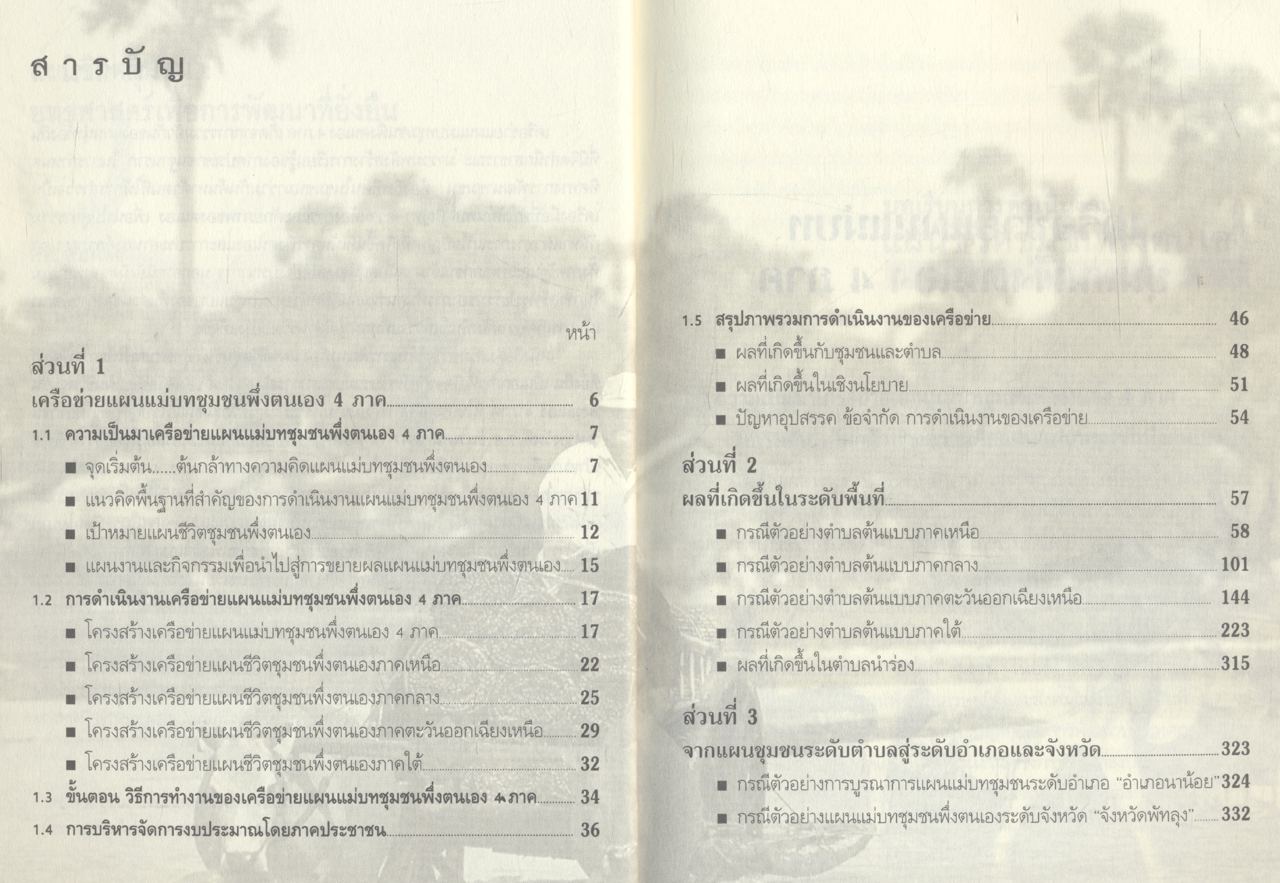 สารบัญ
หน้า
ส่วนที่ 1
เครือข่ายแผนแม่บทชุมชนพึ่งตนเอง 4 ภาค 6
1.1 ความเป็นมาเครือข่ายแผนแม่บทชุมชนพึ่งตนเอง 4 ภาค 7
■ จุดเริ่มต้น.....ต้นกล้าทางความคิดแผนแม่บทชุมชนพึ่งตนเอง 7
■ แนวคิดพื้นฐานที่สำคัญของการดำเนินงานแผนแม่บทชุมชนพึ่งตนเอง 4 ภาค 11
■ เป้าหมายแผนชีวิตชุมชนพึ่งตนเอง 12
■ แผนงานและกิจกรรมเพื่อนำไปสู่การขยายผลแผนแม่บทชุมชนพึ่งตนเอง 15
1.2 การดำเนินงานเครือข่ายแผนแม่บทชุมชนพึ่งตนเอง 4 ภาค 17
■ โครงสร้างเครือข่ายแผนแม่บทชุมชนพึ่งตนเอง 4 ภาค 17
■ โครงสร้างเครือข่ายแผนชีวิตชุมชนพึ่งตนเองภาคเหนือ 22
■ โครงสร้างเครือข่ายแผนชีวิตชุมชนพึ่งตนเองภาคกลาง 25
■ โครงสร้างเครือข่ายแผนชีวิตชุมชนพึ่งตนเองภาคตะวันออกเฉียงเหนือ 29
■ โครงสร้างเครือข่ายแผนชีวิตชุมชนพึ่งตนเองภาคใต้ 32
1.3 ขั้นตอน วิธีการทำงานของเครือข่ายแผนแม่บทชุมชนพึ่งตนเอง 4 ภาค 34
1.4 การบริหารจัดการงบประมาณโดยภาคประชาชน 36
1.5 สรุปภาพรวมการดำเนินงานของเครือข่าย 46
■ ผลที่เกิดขึ้นกับชุมชนและตำบล 48
■ ผลที่เกิดขึ้นในเชิงนโยบาย 51
■ ปัญหาอุปสรรค ข้อจำกัด การดำเนินงานของเครือข่าย 54
ส่วนที่ 2
ผลที่เกิดขึ้นในระดับพื้นที่ 57
■ กรณีตัวอย่างตำบลต้นแบบภาคเหนือ 58
■ กรณีตัวอย่างตำบลต้นแบบภาคกลาง 101
■ กรณีตัวอย่างตำบลต้นแบบภาคตะวันออกเฉียงเหนือ 144
■ กรณีตัวอย่างตำบลต้นแบบภาคใต้ 223
■ ผลที่เกิดขึ้นในตำบลนำร่อง 315
ส่วนที่ 3
จากแผนชุมชนระดับตำบลสู่ระดับอำเภอและจังหวัด 323
■ กรณีตัวอย่างการบูรณาการแผนแม่บทชุมชนระดับอำเภอ "อำเภอนาน้อย" 324
■ กรณีตัวอย่างแผนแม่บทชุมชนพึ่งตนเองระดับจังหวัด "จังหวัดพัทลุง" 332